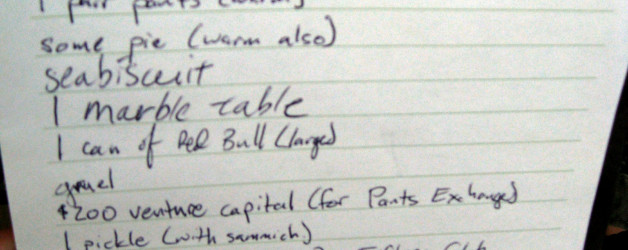 1 pair pants (warm)
some pie (warm also)
seabiscuit
1 marble table
1 can of Red Bull (large)
gruel
$200 venture capital (for Pants Exchange)
1 pickle (with sammich)